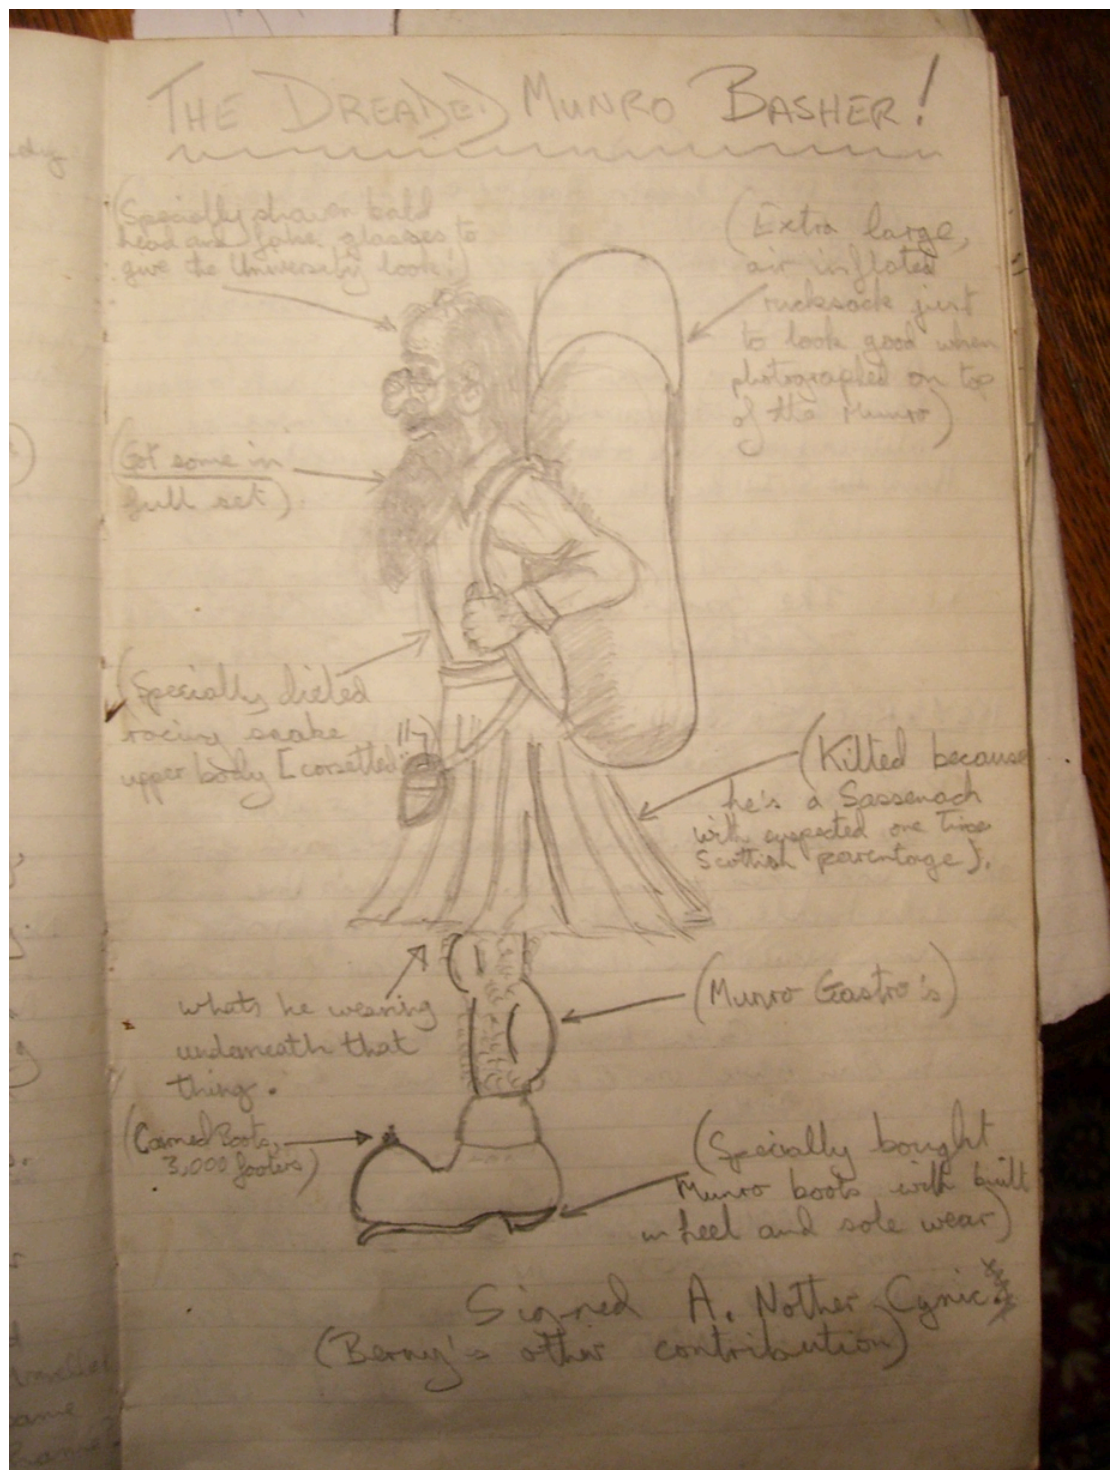 THE DREADED MUNRO BASHER!
(Specially shaven bald
head and fake glasses to
give the University look!)
(Extra large,
air inflated
rucksack just
to look good when
photographed on top
of the Munro)
(Got some in
full set)
(Specially dieted
racing snake
upper body [corsetted]
(Kilted because
he's a Sassenach
with suspected one time
Scottish parentage).
whats he wearing
underneath that
thing.
(Munro Gastro's)
(Cairned Boots,
3,000 footers)
(Specially bought
Munro boots with built
in heel and sole wear)
Signed A. Nother Cynic.
(Berny's other contribution)